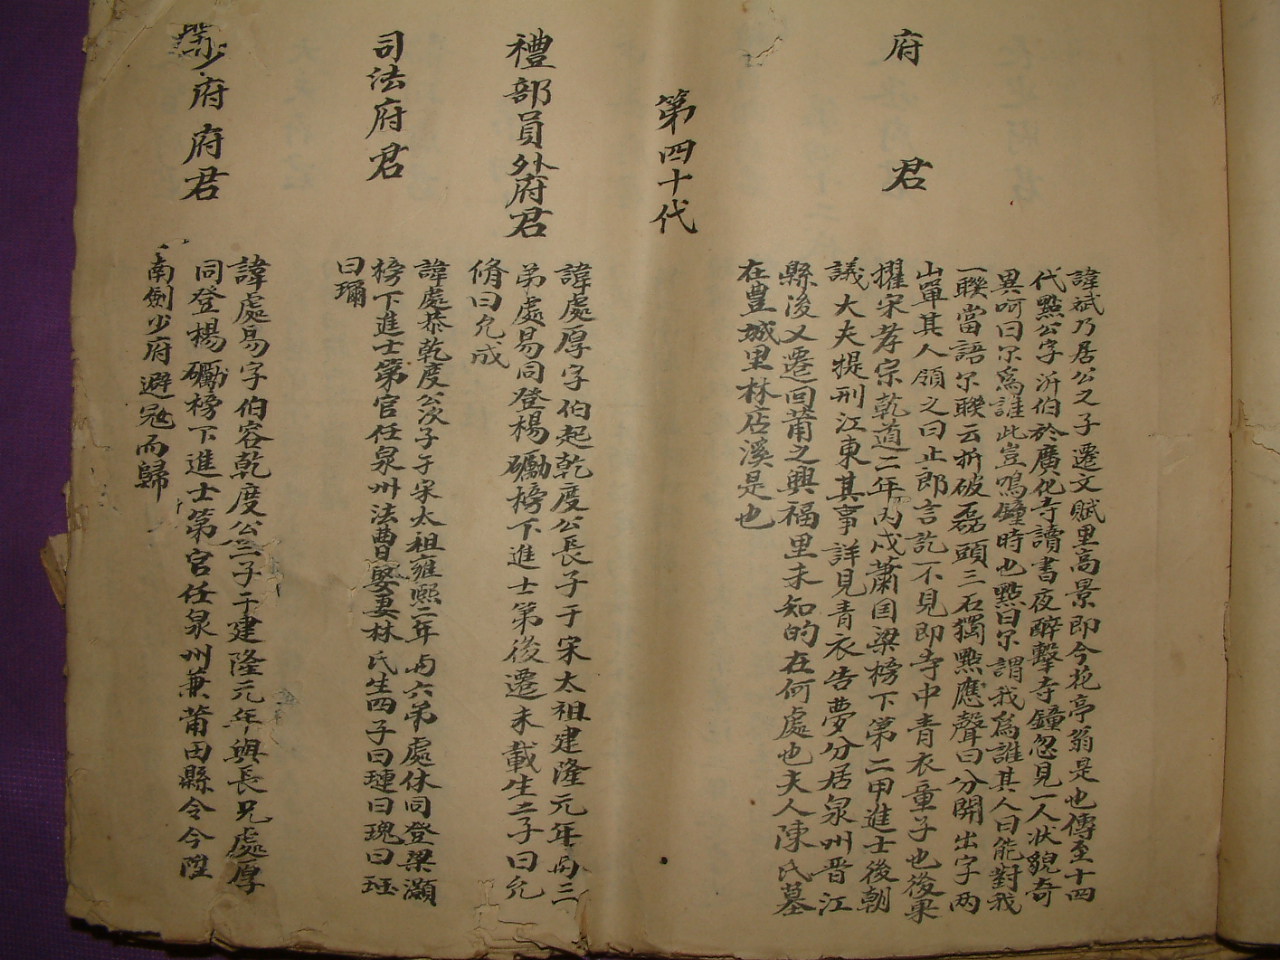 府君
諱斌乃居公之子遷文賦里高景即今苑亭翁是也傳至十四
代點公字沂伯於廣化寺讀書夜醉擊寺鐘忽見一人狀貌奇
異呵曰尔為誰此豈鳴鐘時也點曰尔謂我為誰其人曰能對我
一聯當語尔聯云折破磊頭三石獨點應聲曰分開出字兩
山單其人領之曰止郎言訖不見即寺中青衣童子也後果
擢宋孝宗乾道二年丙戌蕭国梁榜下第二甲進士後朝
議大夫提刑江東其事詳見青衣告夢分居泉州晉江
縣後又遷回莆之興福里未知的在何處也夫人陳氏墓
在豊城里林店溪是也
第四十代
禮部員外府君
諱處厚字伯起乾度公長子于宋太祖建隆元年與三
弟處易同登楊礪榜下進士第後遷未載生二子曰允
脩曰允成
司法府君
諱處恭乾度公次子于宋太祖雍熙二年与六弟處休同登梁灝
榜下進士第官任泉州法曹娶妻林氏生四子曰璉曰瑰曰珏
曰瓓
少府府君
諱處易字伯容乾度公三子于建隆元年與長兄處厚
同登楊礪榜下進士第官任泉州兼莆田縣令今陞
南劍少府避冦而歸